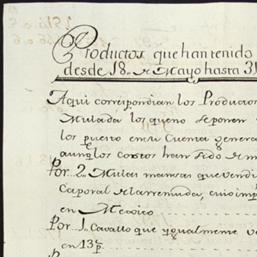 Productos que han tenido
desde 18. de Mayo hasta 31
Aqui correspondian los Productos
Mulada los que no se ponen
los puso en su Cuenta genera
aunq. los costos han sido de m
Por 2. Mulas mansas que vendi
Caporal de la remuda, cuio imp
en Mexico
Por 1. Cavallo que ygualmente v
en 13 p.